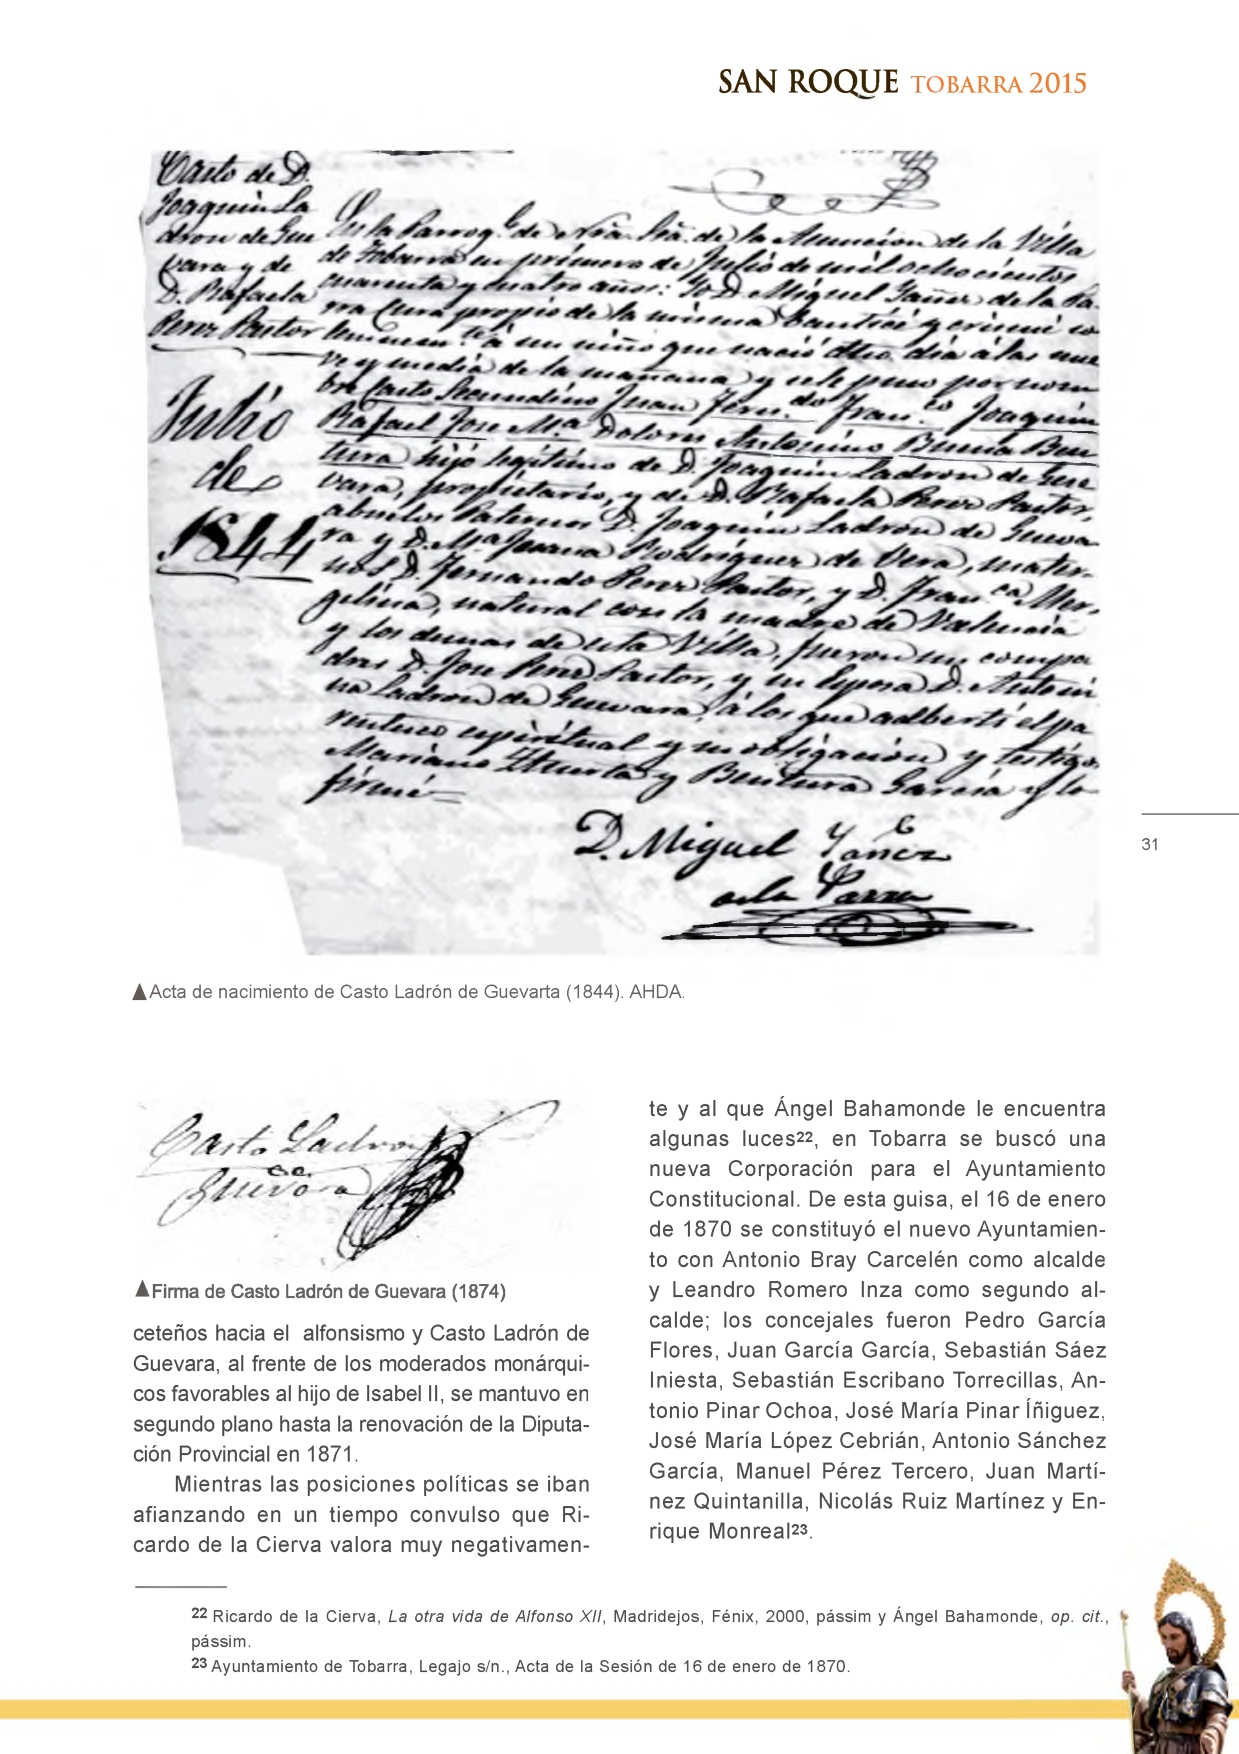 SAN ROQUE TOBARRA 2015
Casto de D.
Joaquin La
dron de Gue
vara y de
D. Rafaela
Perez Pastor
Julio
de
1844
En la Parroq.l de Ntra. Sra. de la Asuncion de la Villa
de Tobarra en primero de Julio de mil ochocientos
cuarenta y cuatro años: Yo D. Miguel Yañez de la Pa-
rra Cura propio de la misma bauticé y crismé so
lemnem.te á un niño que nació dho. dia á las nue
ve y media de la mañana y se le puso por nom
bre Casto Secundino Juan Fern.do Fran.co Joaquin
Rafael Jose M.a Dolores Antonino Buena Ben
tura hijo legitimo de D. Joaquin Ladron de Gue
vara, propietario, y de D. Rafaela Perez Pastor,
abuelos Paternos D. Joaquin Ladron de Gueva
ra y D. M.a Juana Rodriguez de Vera, mater-
nos D. Fernando Perez Pastor, y D. Fran.ca Mer-
gelina, natural con la madre de Valencia
y los demas de esta Villa, fueron sus compa
dres D. Jose Perez Pastor, y su Esposa D. Antoni
na Ladron de Guevara, á los que adbertí el pa
rentesco espiritual y su obligacion, y testigos
Mariano Huerta y Bentura Garcia y lo
firmé
D. Miguel Yañez
de la Parra
31
Acta de nacimiento de Casto Ladrón de Guevarta (1844). AHDA.
Casto Ladron
de
Guevara
Firma de Casto Ladrón de Guevara (1874)
ceteños hacia el alfonsismo y Casto Ladrón de
Guevara, al frente de los moderados monárqui-
cos favorables al hijo de Isabel II, se mantuvo en
segundo plano hasta la renovación de la Diputa-
ción Provincial en 1871.
Mientras las posiciones políticas se iban
afianzando en un tiempo convulso que Ri-
cardo de la Cierva valora muy negativamen-
te y al que Ángel Bahamonde le encuentra
algunas luces22, en Tobarra se buscó una
nueva Corporación para el Ayuntamiento
Constitucional. De esta guisa, el 16 de enero
de 1870 se constituyó el nuevo Ayuntamien-
to con Antonio Bray Carcelén como alcalde
y Leandro Romero Inza como segundo al-
calde; los concejales fueron Pedro García
Flores, Juan García García, Sebastián Sáez
Iniesta, Sebastián Escribano Torrecillas, An-
tonio Pinar Ochoa, José María Pinar Íñiguez,
José María López Cebrián, Antonio Sánchez
García, Manuel Pérez Tercero, Juan Martí-
nez Quintanilla, Nicolás Ruiz Martínez y En-
rique Monreal23.
22 Ricardo de la Cierva, La otra vida de Alfonso XII, Madridejos, Fénix, 2000, pássim y Ángel Bahamonde, op. cit.,
pássim.
23 Ayuntamiento de Tobarra, Legajo s/n., Acta de la Sesión de 16 de enero de 1870.